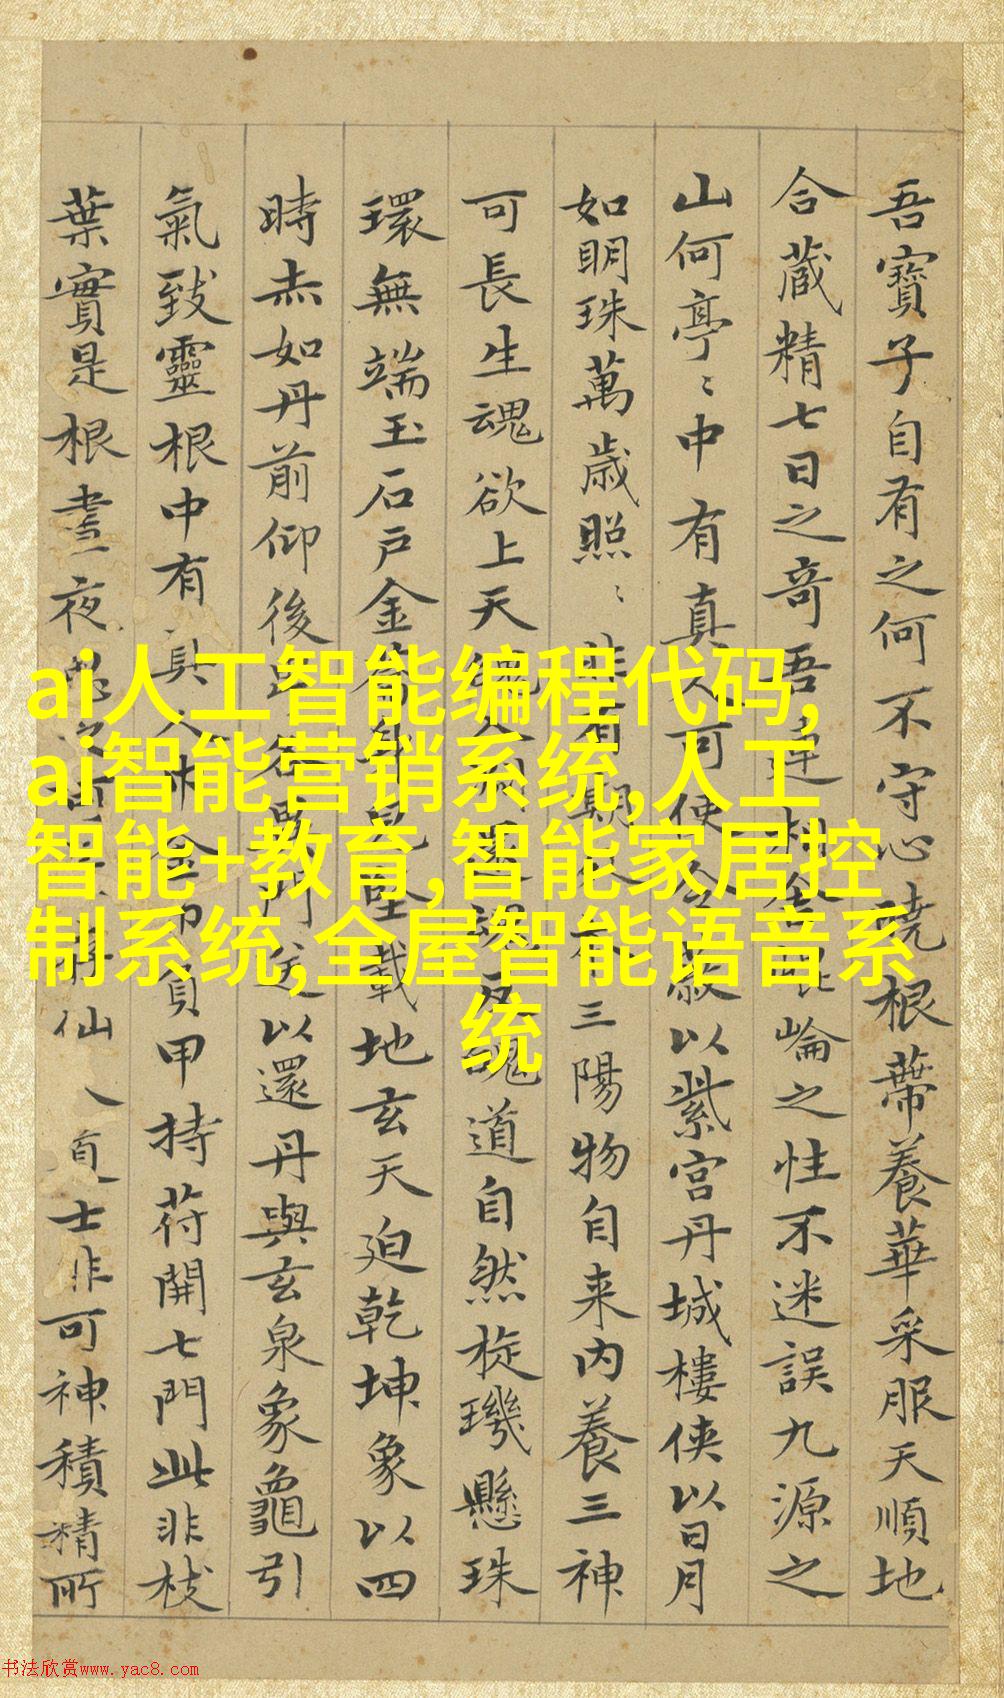 吾寶子自有之何不守心曉根蔕養華采服天順地
合蔵精七日之奇吾連相崘之性不迷誤九源之
山何亭〻中有真人可使令嚴以紫宮丹城樓俠以日月
如明珠萬歲照〻非有期三陽物自来內養三神
可長生魂欲上天魄入淵還魂反魄道自然琁璣懸珠
環無端玉石戶金籥身堅載地玄天迫乾坤象以四
時赤如丹前仰後門送以還丹與玄泉象龜引
氣致靈根中有真人巾金巾負甲持苻開七門此非枝
葉實是根晝夜思之可長存仙人道士非可神積精所
ai人工智能编程代码,
ai智能营销系统,人工
智能+教育,智能家居控
制系统,全屋智能语音系
统
书法欣赏www.yac8.com